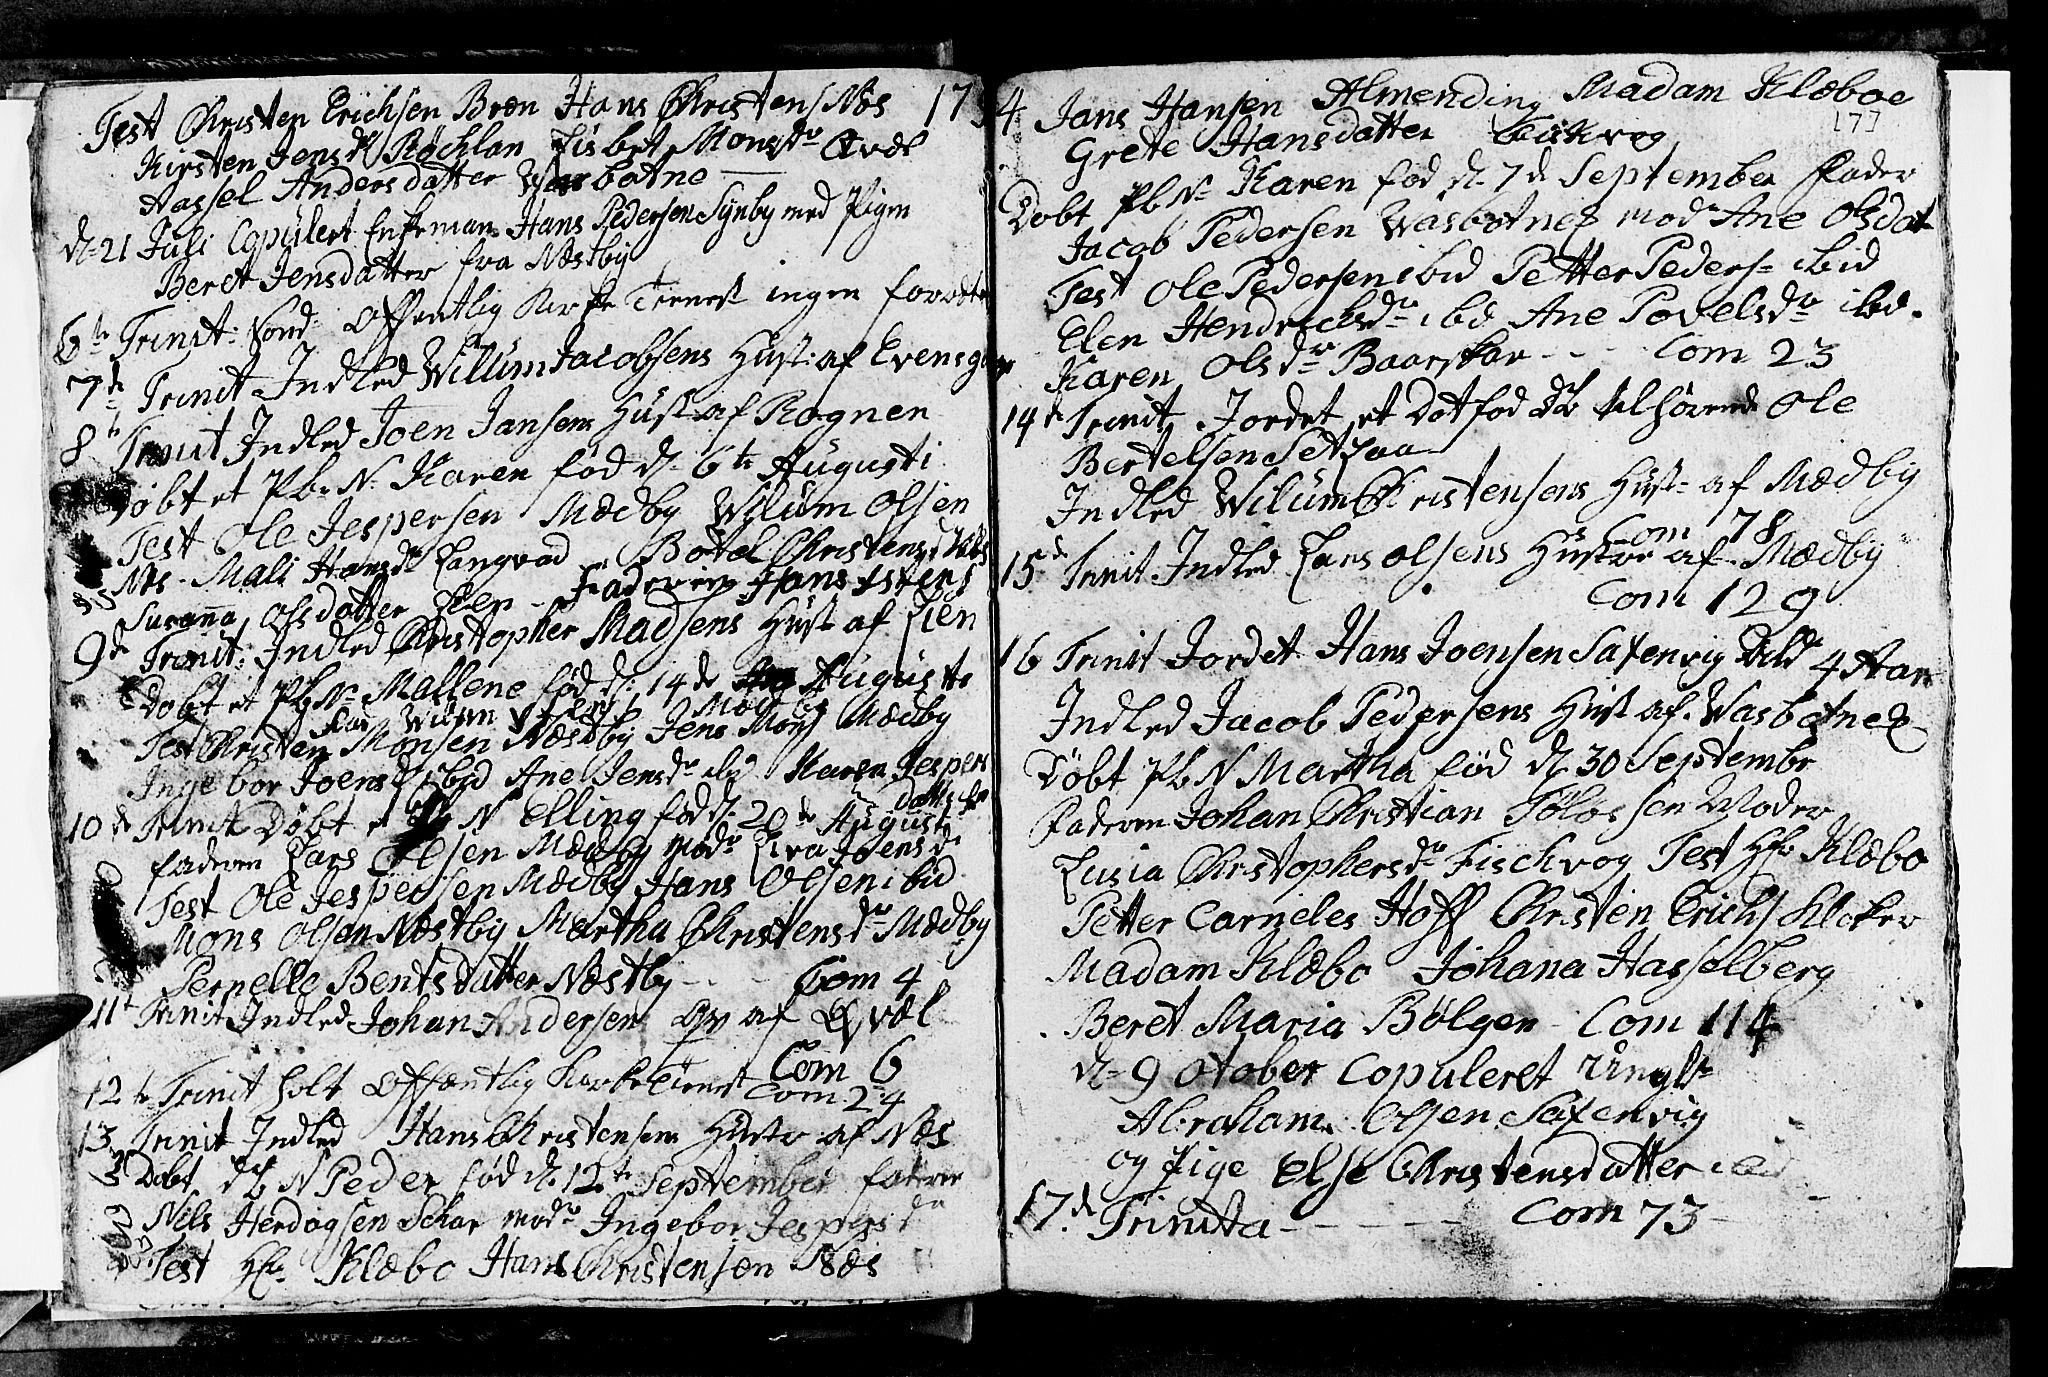 Test Christen Erichsen Bræn Hans Christens Næs 17
Kirsten Jensdr Röchlan Lisbet Monsdr Qvæl
Hassel Andersdatter Wasbotne
d. 21 Juli Copulert Enkemand Hans Pedersen Synby med Pigen
Beret Jensdatter fra Næstby
6te Trinit: Sönd: Offentlig Kirke Tieneste ingen forrette
7de Trinit Indled Willum Jacobsens Hust: af Evensgaar
8te Trinit Indled Joen Jansens Hust af Rognen
Döbt et Pb. N. Karen föd d. 6te Augusti
Test Ole Jespersen Mædby Wilum Olsen
Næs - Mali Hansdr Langvad Botel Christensd Næs
Susanna Olsdatter Lien - Faderen Hans Istens
9de Trinit: Indled Christopher Madsens Hust af Lien
Döbt et Pb N. Mallene föd d: 14de Augusti
Far Wilum Mædby
Test Christen Monsen Næstby Jens Mons Mædby
Ingebor Joensdr ibid Ane Jensdr ibid Karen Jespers
datter
10de Trinit Döbt et N Elling föd d. 20de Augusti
faderen Lars Olsen Mædby modr Liva Joensdr
Test Ole Jespersen Mædby Hans Olsen ibid
Mons Olsen Næstby Martha Christensdr Mædby
Pernelle Bentsdatter Næstby - - - Com 4
11te Trinit Indled Johan Andersens Qv af Qvæl
Com 6
12te Trinit holt Offentlig Kirketienest Com 24
13 Trinit Indled Hans Christensens Hustr af Næs
Döbt db N Peder föd d. 12te September faderen
Nils Herdagsen Schar modr Ingebor Jespersdr
Test Hr Klæbo Hans Christensen Næs
4 Jans Hansen Almending Madam Klæboe
[7]
Grete Hansdatter
Döbt Pb N. Karen föd d. 7de September Fader
Jacob Pedersen Wasbotnet modr Ane Olsdat
Test Ole Pedersen ibid Petter Peders. ibid
Elen Hendrichsdr ibd Ane Povelsdr ibd.
Karen Olsdr Baarskar - - - Com 23
14de Trinit Jordet et Dötföd db tilhörende Ole
Bertelsen Setzaa
Indled Wilum Christensens Hust: af Mædby
Com 78
15de Trinit Indled Lars Olsens Hustroe af Mædby
Com 129
16 Trinit Jordet Hans Joensen Saxenvig Old 4 Aar
Indled Jacob Pedersens Hust af Wasbotnet
Döbt Pb N Martha föd d 30 Septembr
Faderen Johan Christian Tölössen Moder
Lusia Christophersdr Fischvog Test Hr Klæbo
Petter Carneles Hoff Christen Erichs Klöker
Madam Klæbo Johana Hasselberg
Beret Maria Bölgen Com 114
d. 9 Otober Copuleret Ungkl
Abraham Olsen Saxenvig
og Pige Else Christensdatter ibid
17de Trinita - - - - - Com 73